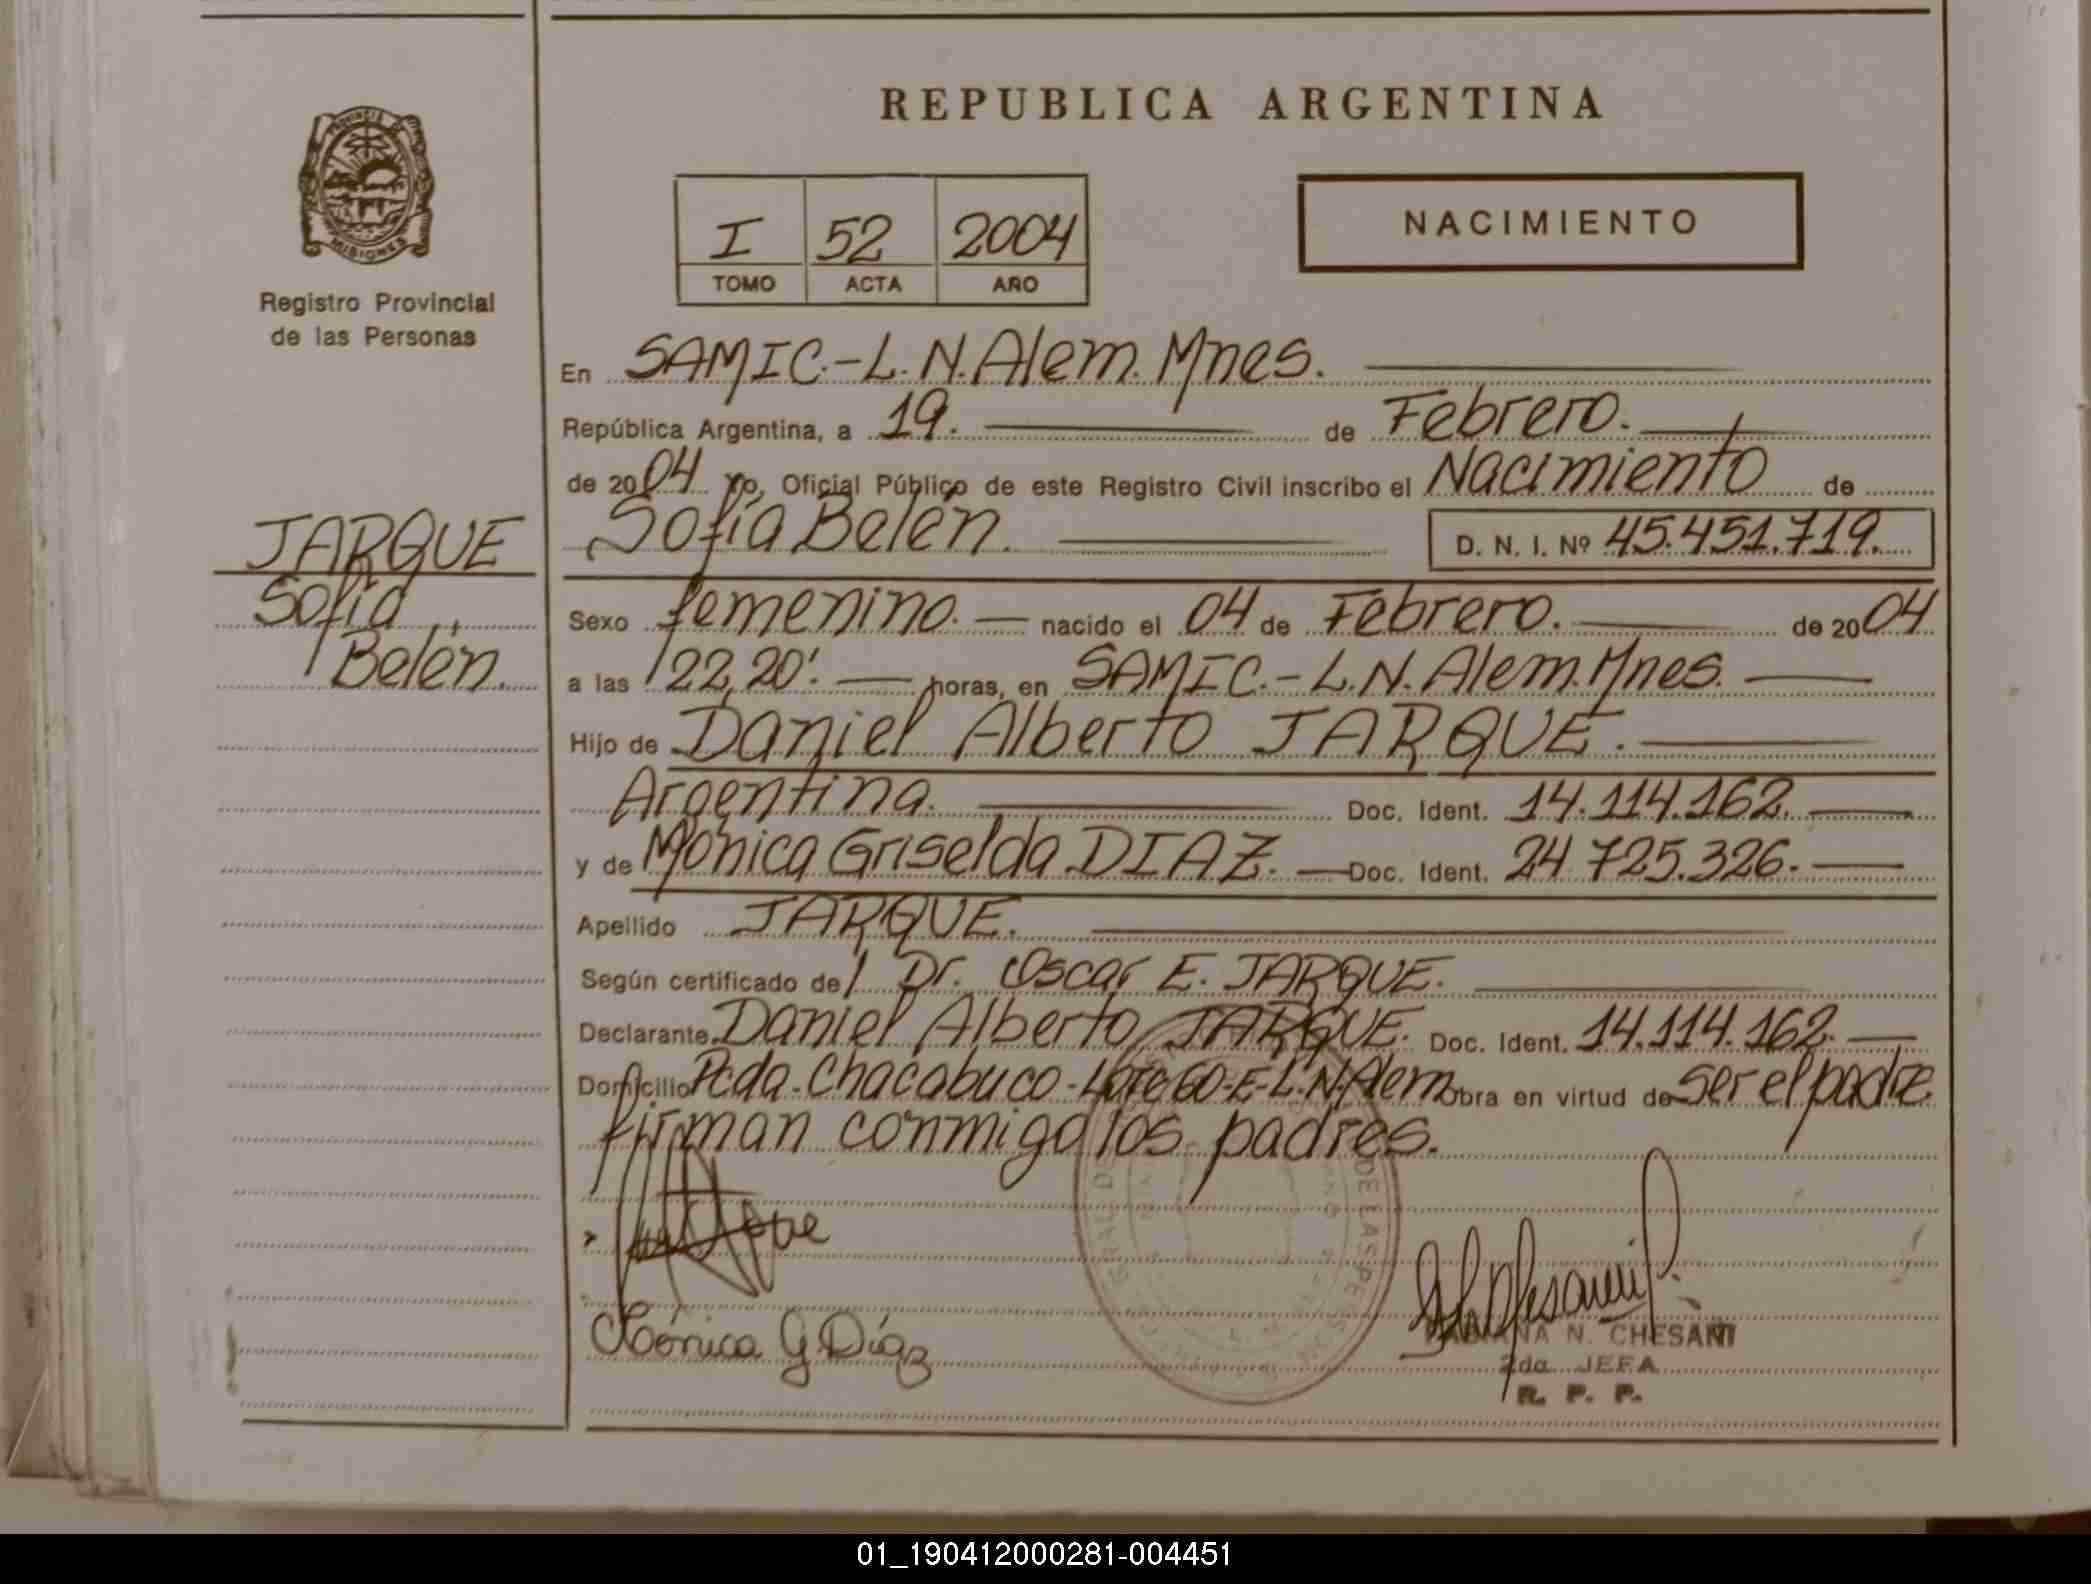 REPUBLICA ARGENTINA
PROVINCIA DE MISIONES
Registro Provincial
de las Personas
I 52 2004
TOMO ACTA AÑO
NACIMIENTO
En SAMIC.-L.N.Alem. Mnes.
República Argentina, a 19. de Febrero.
de 2004 Yo, Oficial Público de este Registro Civil inscribo el Nacimiento de
Sofía Belén. D. N. I. Nº 45.451.719.
JARQUE
Sofía
Belén.
Sexo femenino. nacido el 04 de Febrero. de 2004
a las 22,20'. horas, en SAMIC.-L.N.Alem.Mnes.
Hijo de Daniel Alberto JARQUE.
Argentina. Doc. Ident. 14.114.162.
y de Mónica Griselda DIAZ. Doc. Ident. 24.725.326.
Apellido JARQUE.
Según certificado del Dr. Oscar E. JARQUE.
Declarante Daniel Alberto JARQUE. Doc. Ident. 14.114.162.
Domicilio Pcda. Chacabuco-Lote 60-E-L.N.Alem obra en virtud de ser el padre
firman conmigo los padres.
Mónica G Díaz
N. CHESANI
2da. JEFA
R. P. P.
01_190412000281-004451